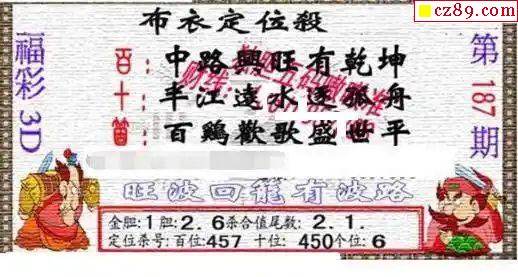 cz89.com
布衣定位殺
福彩3D
第187期
百:中路興旺有乾坤
十:半江遠水逐孤舟
箇:百鷄歡歌盛世平
旺波回龍有波路
金胆:1胆:2.6杀合值尾数:2.1.
定位杀号:百位:457 十位:450个位:6